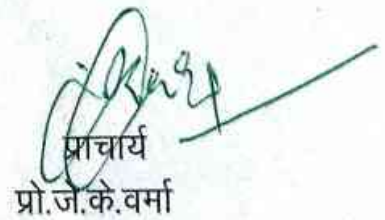 प्राचार्य
प्रो.जे.के.वर्मा